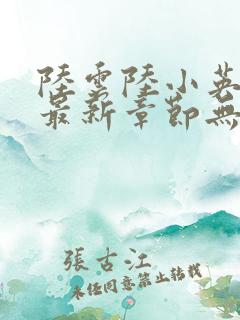 陸雲陸小英
最新章節無
張古江
未任同意禁止转载